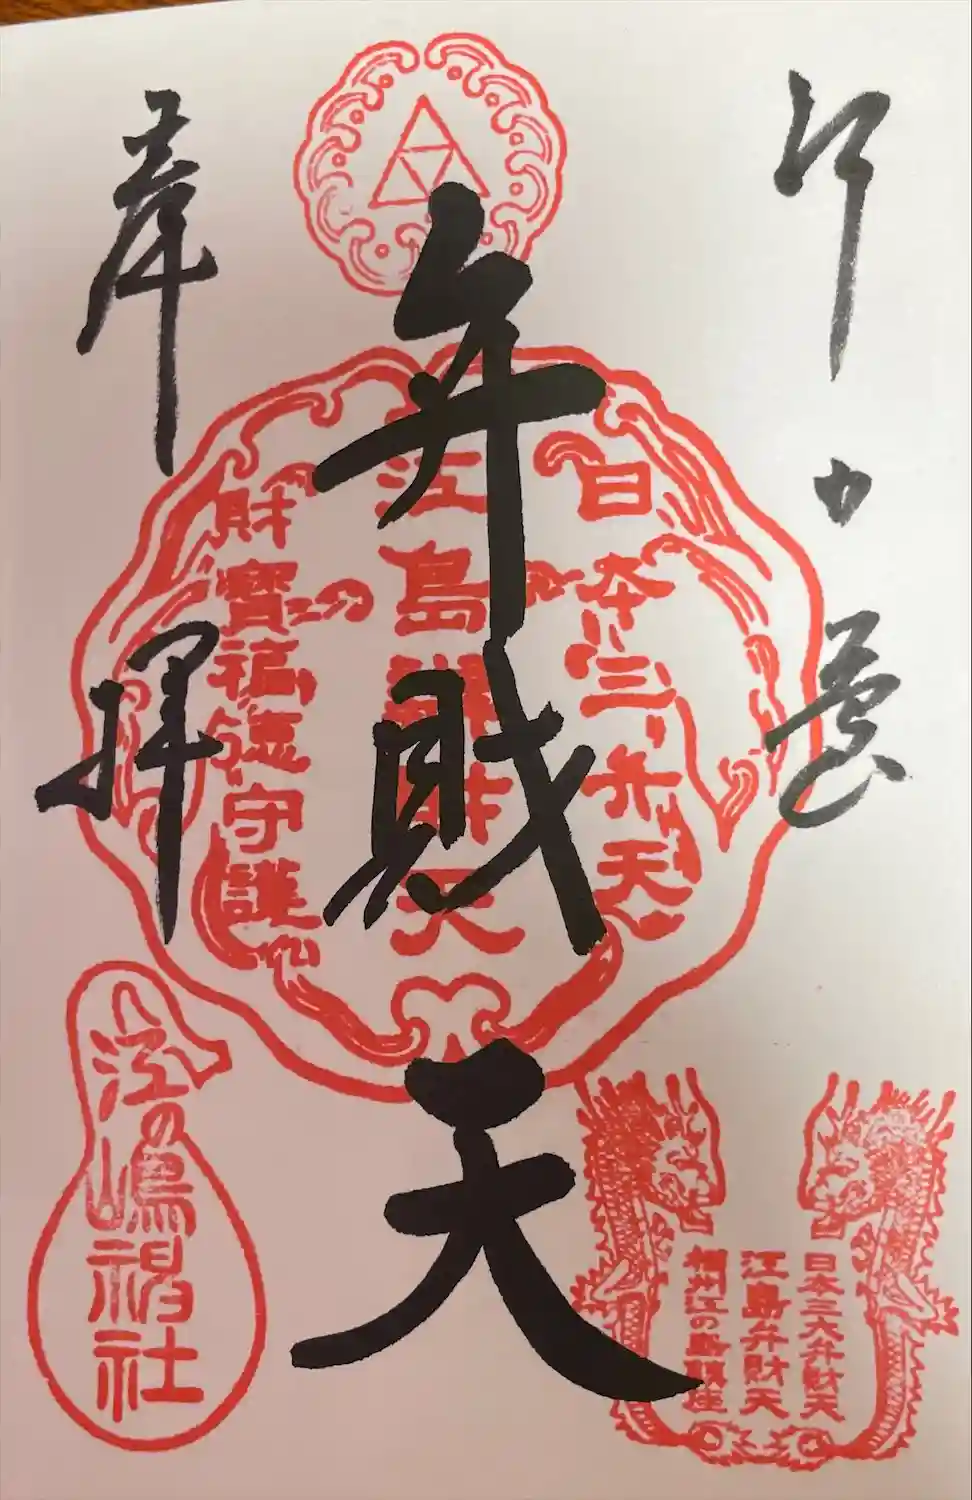 江の島
弁財天
奉拝
日本三弁天
江島辨財天
財寶福徳守護
日本三大弁財天
江島弁財天
相州江の島鎮座
江の嶋神社